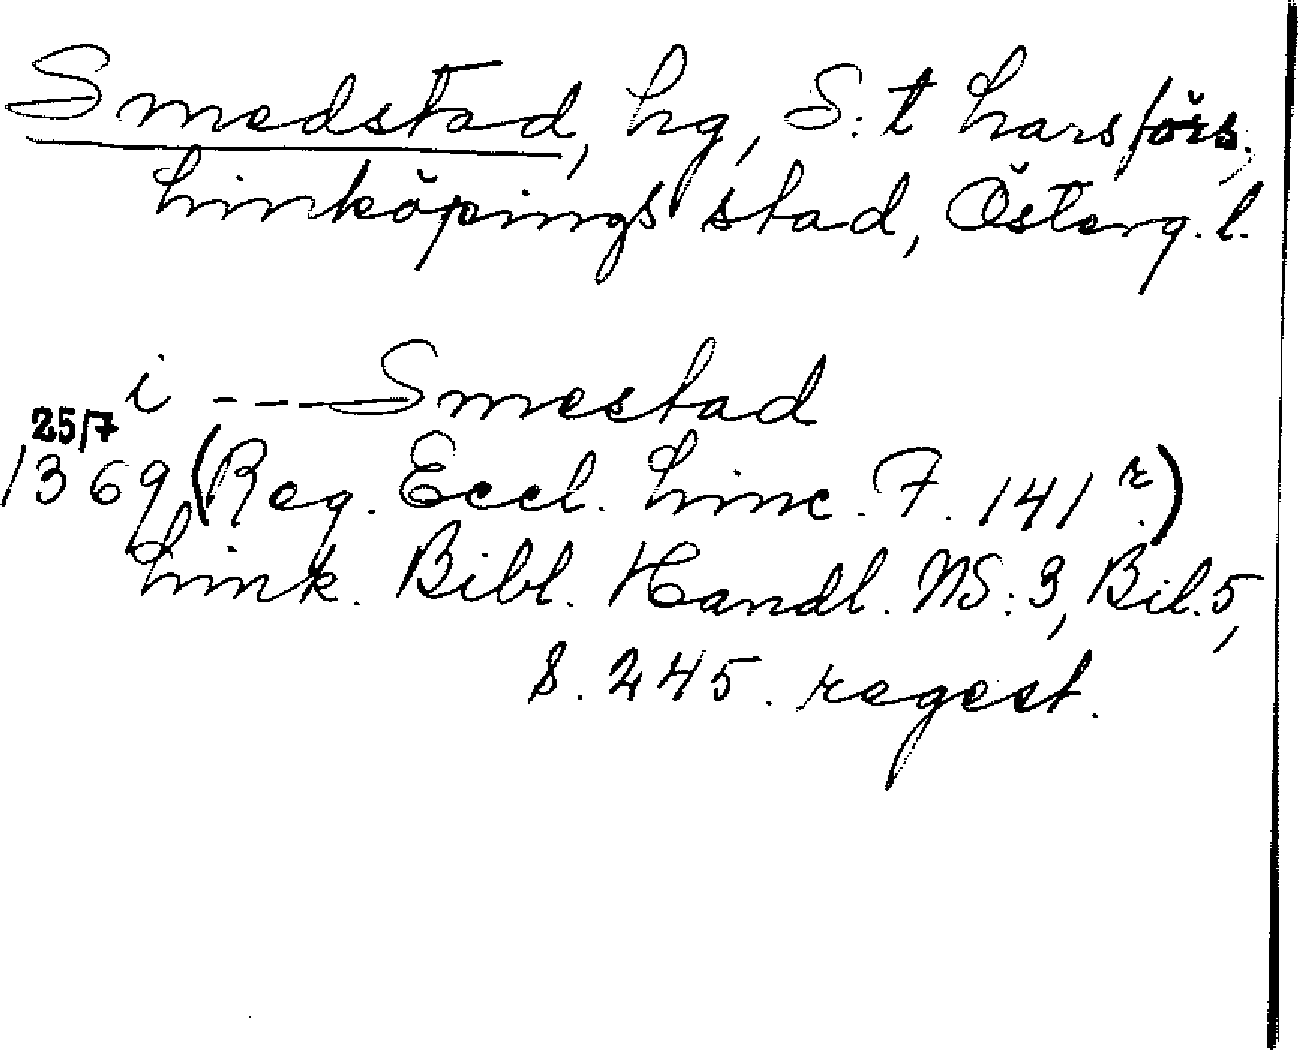 Smedstad, hg, S:t Lars förs.,
Linköpings stad, Österg. l.
i --- Smestad
25/7
1369 (Reg. Eccl. Linc. F. 141 r.)
Link. Bibl. Handl. NS: 3, Bil. 5,
S. 245. regest.